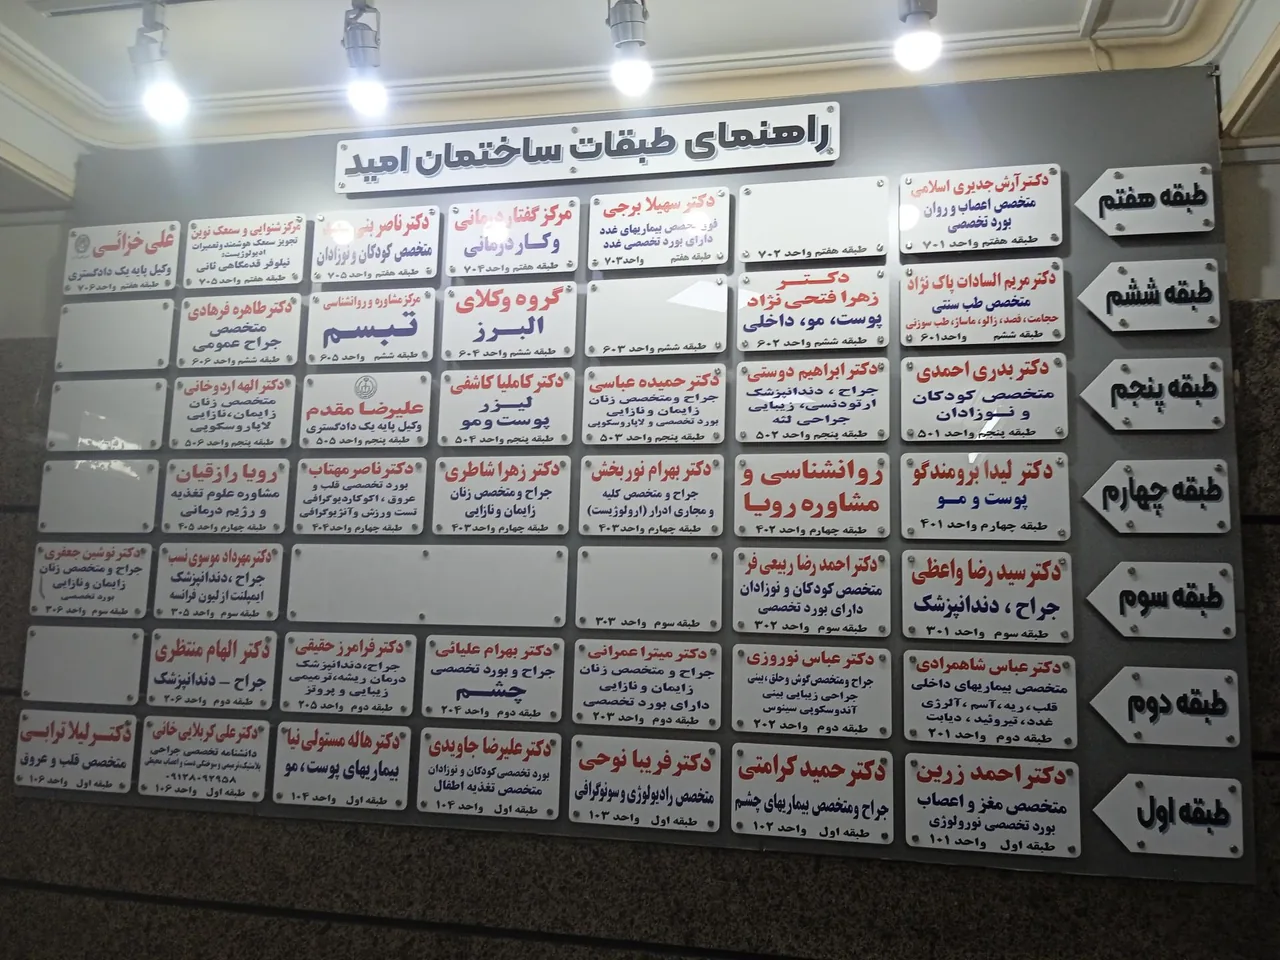 راهنمای طبقات ساختمان امید
طبقه هفتم
دکتر آرش جدیری اسلامی
متخصص اعصاب و روان
بورد تخصصی
طبقه هفتم واحد ۷۰۱
طبقه هفتم واحد ۷۰۲
دکتر سهیلا برجی
فوق تخصص بیماریهای غدد
دارای بورد تخصصی غدد
طبقه هفتم واحد ۷۰۳
مرکز گفتار درمانی
و کار درمانی
طبقه هفتم واحد ۷۰۴
دکتر ناصر بنی
متخصص کودکان و نوزادان
طبقه هفتم واحد ۷۰۵
مرکز شنوایی و سمعک نوین
تجویز سمعک هوشمند و تعمیرات
ادیولوژیست:
نیلوفر قدمگاهی ثانی
طبقه هفتم واحد ۷۰۵
علی خزائـی
وکیل پایه یک دادگستری
طبقه هفتم واحد ۷۰۶
طبقه ششم
دکتر مریم السادات پاک نژاد
متخصص طب سنتی
حجامت، فصد، زالو، ماساژ، طب سوزنی
طبقه ششم واحد ۶۰۱
دکتـــر
زهرا فتحی نژاد
پوست، مو، داخلی
طبقه ششم واحد ۶۰۲
طبقه ششم واحد ۶۰۳
گروه وکلای
البـرز
طبقه ششم واحد ۶۰۴
مرکز مشاوره و روانشناسی
تبسم
طبقه ششم واحد ۶۰۵
دکتر طاهره فرهادی
متخصص
جراح عمومی
طبقه ششم واحد ۶۰۶
طبقه پنجم
دکتر بدری احمدی
متخصص کودکان
و نـوزادان
طبقه پنجم واحد ۵۰۱
دکتر ابراهیم دوستی
جراح ، دندانپزشک
ارتودنسی، زیبایی
جراحی لثه
طبقه پنجم واحد ۵۰۲
دکتر حمیده عباسی
جراح ومتخصص زنان
زایمان و نازایی
بورد تخصصی و لاپاروسکوپی
طبقه پنجم واحد ۵۰۳
دکتر کاملیا کاشفی
لیـزر
پوست و مو
طبقه پنجم واحد ۵۰۴
علیرضـا مقـدم
وکیل پایه یک دادگستری
طبقه پنجم واحد ۵۰۵
دکتر الهه اردوخانی
متخصص زنان
زایمان، نازایی
لاپاروسکوپی
طبقه پنجم واحد ۵۰۶
طبقه چهارم
دکتر لیدا برومندگو
پوست و مـو
طبقه چهارم واحد ۴۰۱
روانشناسی و
مشاوره رویـا
طبقه چهارم واحد ۴۰۲
دکتر بهرام نوربخش
جراح و متخصص کلیه
و مجاری ادرار (ارولوژیست)
طبقه چهارم واحد ۴۰۳
دکتر زهرا شاطری
جراح ومتخصص زنان
زایمان و نازایی
طبقه چهارم واحد ۴۰۳
دکتر ناصر مهتاب
بورد تخصصی قلب و
عروق ، اکوکاردیوگرافی
تست ورزش و آنژیوگرافی
طبقه چهارم واحد ۴۰۴
رویـا رازقیـان
مشاوره علوم تغذیه
و رژیم درمانی
طبقه چهارم واحد ۴۰۵
طبقه سوم
دکتر سید رضا واعظی
جراح ، دندانپزشک
طبقه سوم واحد ۳۰۱
دکتر احمد رضا ربیعی فر
متخصص کودکان و نوزادان
دارای بورد تخصصی
طبقه سوم واحد ۳۰۲
طبقه سوم واحد ۳۰۳
دکتر مهرداد موسوی نسب
جراح ،دندانپزشک
ایمپلنت از لیون فرانسه
طبقه سوم واحد ۳۰۵
دکتر نوشین جعفری
جراح و متخصص زنان
زایمان و نازایی
بورد تخصصی
طبقه سوم واحد ۳۰۶
طبقه دوم
دکتر عباس شاهمرادی
متخصص بیماریهای داخلی
قلب، ریه، آسم ، آلرژی
غدد، تیروئید ، دیابت
طبقه دوم واحد ۲۰۱
دکتر عباس نوروزی
جراح ومتخصص گوش و حلق ، بینی
جراحی زیبایی بینی
آندوسکوپی سینوس
طبقه دوم واحد ۲۰۲
دکتر میترا عمرانی
جراح و متخصص زنان
زایمان و نازایی
دارای بورد تخصصی
طبقه دوم واحد ۲۰۳
دکتر بهرام علیائی
جراح و بورد تخصصی
چشـــم
طبقه دوم واحد ۲۰۴
دکتر فرامرز حقیقی
جراح،دندانپزشک
درمان ریشه،ترمیمی
زیبایی و پروتز
طبقه دوم واحد ۲۰۵
دکتر الهام منتظری
جراح – دندانپزشک
طبقه دوم واحد ۲۰۶
طبقه اول
دکتر احمد زرین
متخصص مغز و اعصاب
بورد تخصصی نورولوژی
طبقه اول واحد ۱۰۱
دکتر حمید کرامتی
جراح ومتخصص بیماریهای چشم
طبقه اول واحد ۱۰۲
دکتر فریبا نوحی
متخصص رادیولوژی و سونوگرافی
طبقه اول واحد ۱۰۳
دکتر علیرضا جاویدی
بورد تخصصی کودکان و نوزادان
متخصص تغذیه اطفال
طبقه اول واحد ۱۰۴
دکتر هاله مستولی نیا
بیماریهای پوست، مو
طبقه اول واحد ۱۰۴
دکتر علی کربلایی خانی
دانشنامه تخصصی جراحی
پلاستیک،ترمیمی و سوختگی دست و اعصاب محیطی
۰۹۱۲۸۰۹۲۹۵۸
طبقه اول واحد ۱۰۶
دکتـر لیلا ترابـی
متخصص قلب و عروق
طبقه اول واحد ۱۰۶